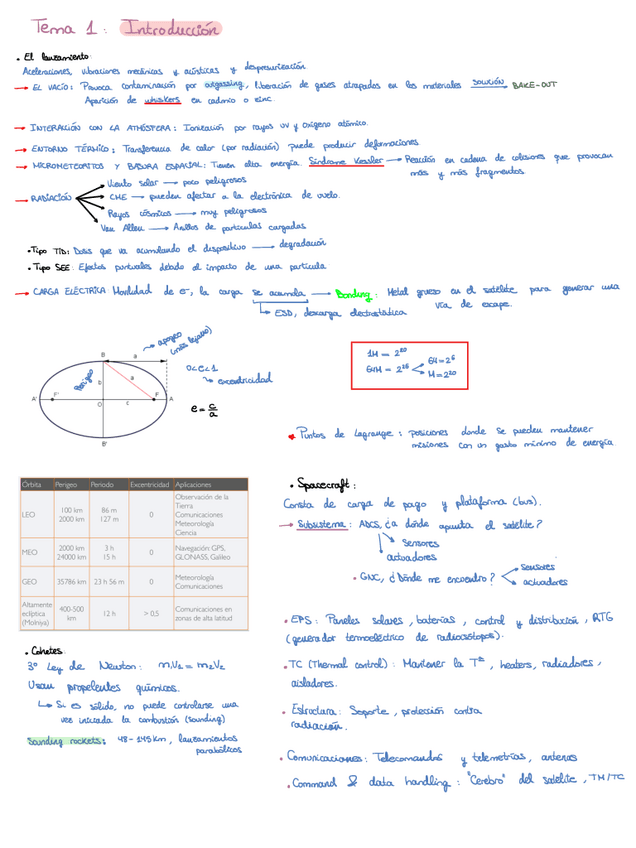 Tema 1: Introducción
• El lanzamiento:
Aceleraciones, vibraciones mecánicas y acústicas y despresurización
→ EL VACÍO: Provoca contaminación por outgassing, liberación de gases atrapados en los materiales solución → BAKE-OUT
Aparición de whiskers en cadmio o zinc.
→ INTERACCIÓN CON LA ATMÓSFERA: Ionización por rayos UV y oxígeno atómico.
→ ENTORNO TÉRMICO: Transferencia de calor (por radiación) puede producir deformaciones
→ MICROMETEORITOS Y BASURA ESPACIAL: Tienen alta energía. Síndrome Kessler → Reacción en cadena de colisiones que provocan
más y más fragmentos
→ RADIACIÓN
Viento solar → poco peligrosos
CME → pueden afectar a la electrónica de vuelo.
Rayos cósmicos → muy peligrosos
Van Allen → Anillos de partículas cargadas
• Tipo TID: Dosis que va acumulando el dispositivo → degradación
• Tipo SEE: Efectos puntuales debido al impacto de una partícula
→ CARGA ELÉCTRICA: Movilidad de e⁻, la carga se acumula → Bonding: Metal grueso en el satélite para generar una
vía de escape.
↳ ESD, descarga electrostática
apogeo
(más lejado)
Perigeo
B
a
A'
F'
b
a
O
c
F
A
B'
0<e<1
↳ excentricidad
e = c/a
1M = 2²⁰
64M = 2²⁶
64 = 2⁶
M = 2²⁰
• Puntos de Lagrange: posiciones donde se pueden mantener
misiones con un gasto mínimo de energía
Órbita Perigeo Periodo Excentricidad Aplicaciones
LEO 100 km 2000 km 86 m 127 m 0 Observación de la Tierra Comunicaciones Meteorología Ciencia
MEO 2000 km 24000 km 3 h 15 h 0 Navegación: GPS, GLONASS, Galileo
GEO 35786 km 23 h 56 m 0 Meteorología Comunicaciones
Altamente eclíptica (Molniya) 400-500 km 12 h > 0,5 Comunicaciones en zonas de alta latitud
• Cohetes:
3º Ley de Newton: m₁V₁ = m₂V₂
Usan propelentes químicos.
↳ Si es sólido, no puede controlarse una
vez iniciada la combustión (sounding)
Sounding rockets: 48-145km, lanzamientos
parabólicos
• Spacecraft:
Consta de carga de pago y plataforma (bus).
→ Subsistema: ADCS, ¿a dónde apunta el satélite?
sensores
actuadores
• GNC, ¿Dónde me encuentro?
sensores
actuadores
• EPS: Paneles solares, baterías, control y distribución, RTG
(generador termoeléctrico de radioisótopos).
• TC (Thermal control): Mantener la Tª, heaters, radiadores,
aisladores.
• Estructura: Soporte, protección contra
radiación.
• Comunicaciones: Telecomandos y telemetrías, antenas
• Command & data handling: "Cerebro" del satélite, TM/TC